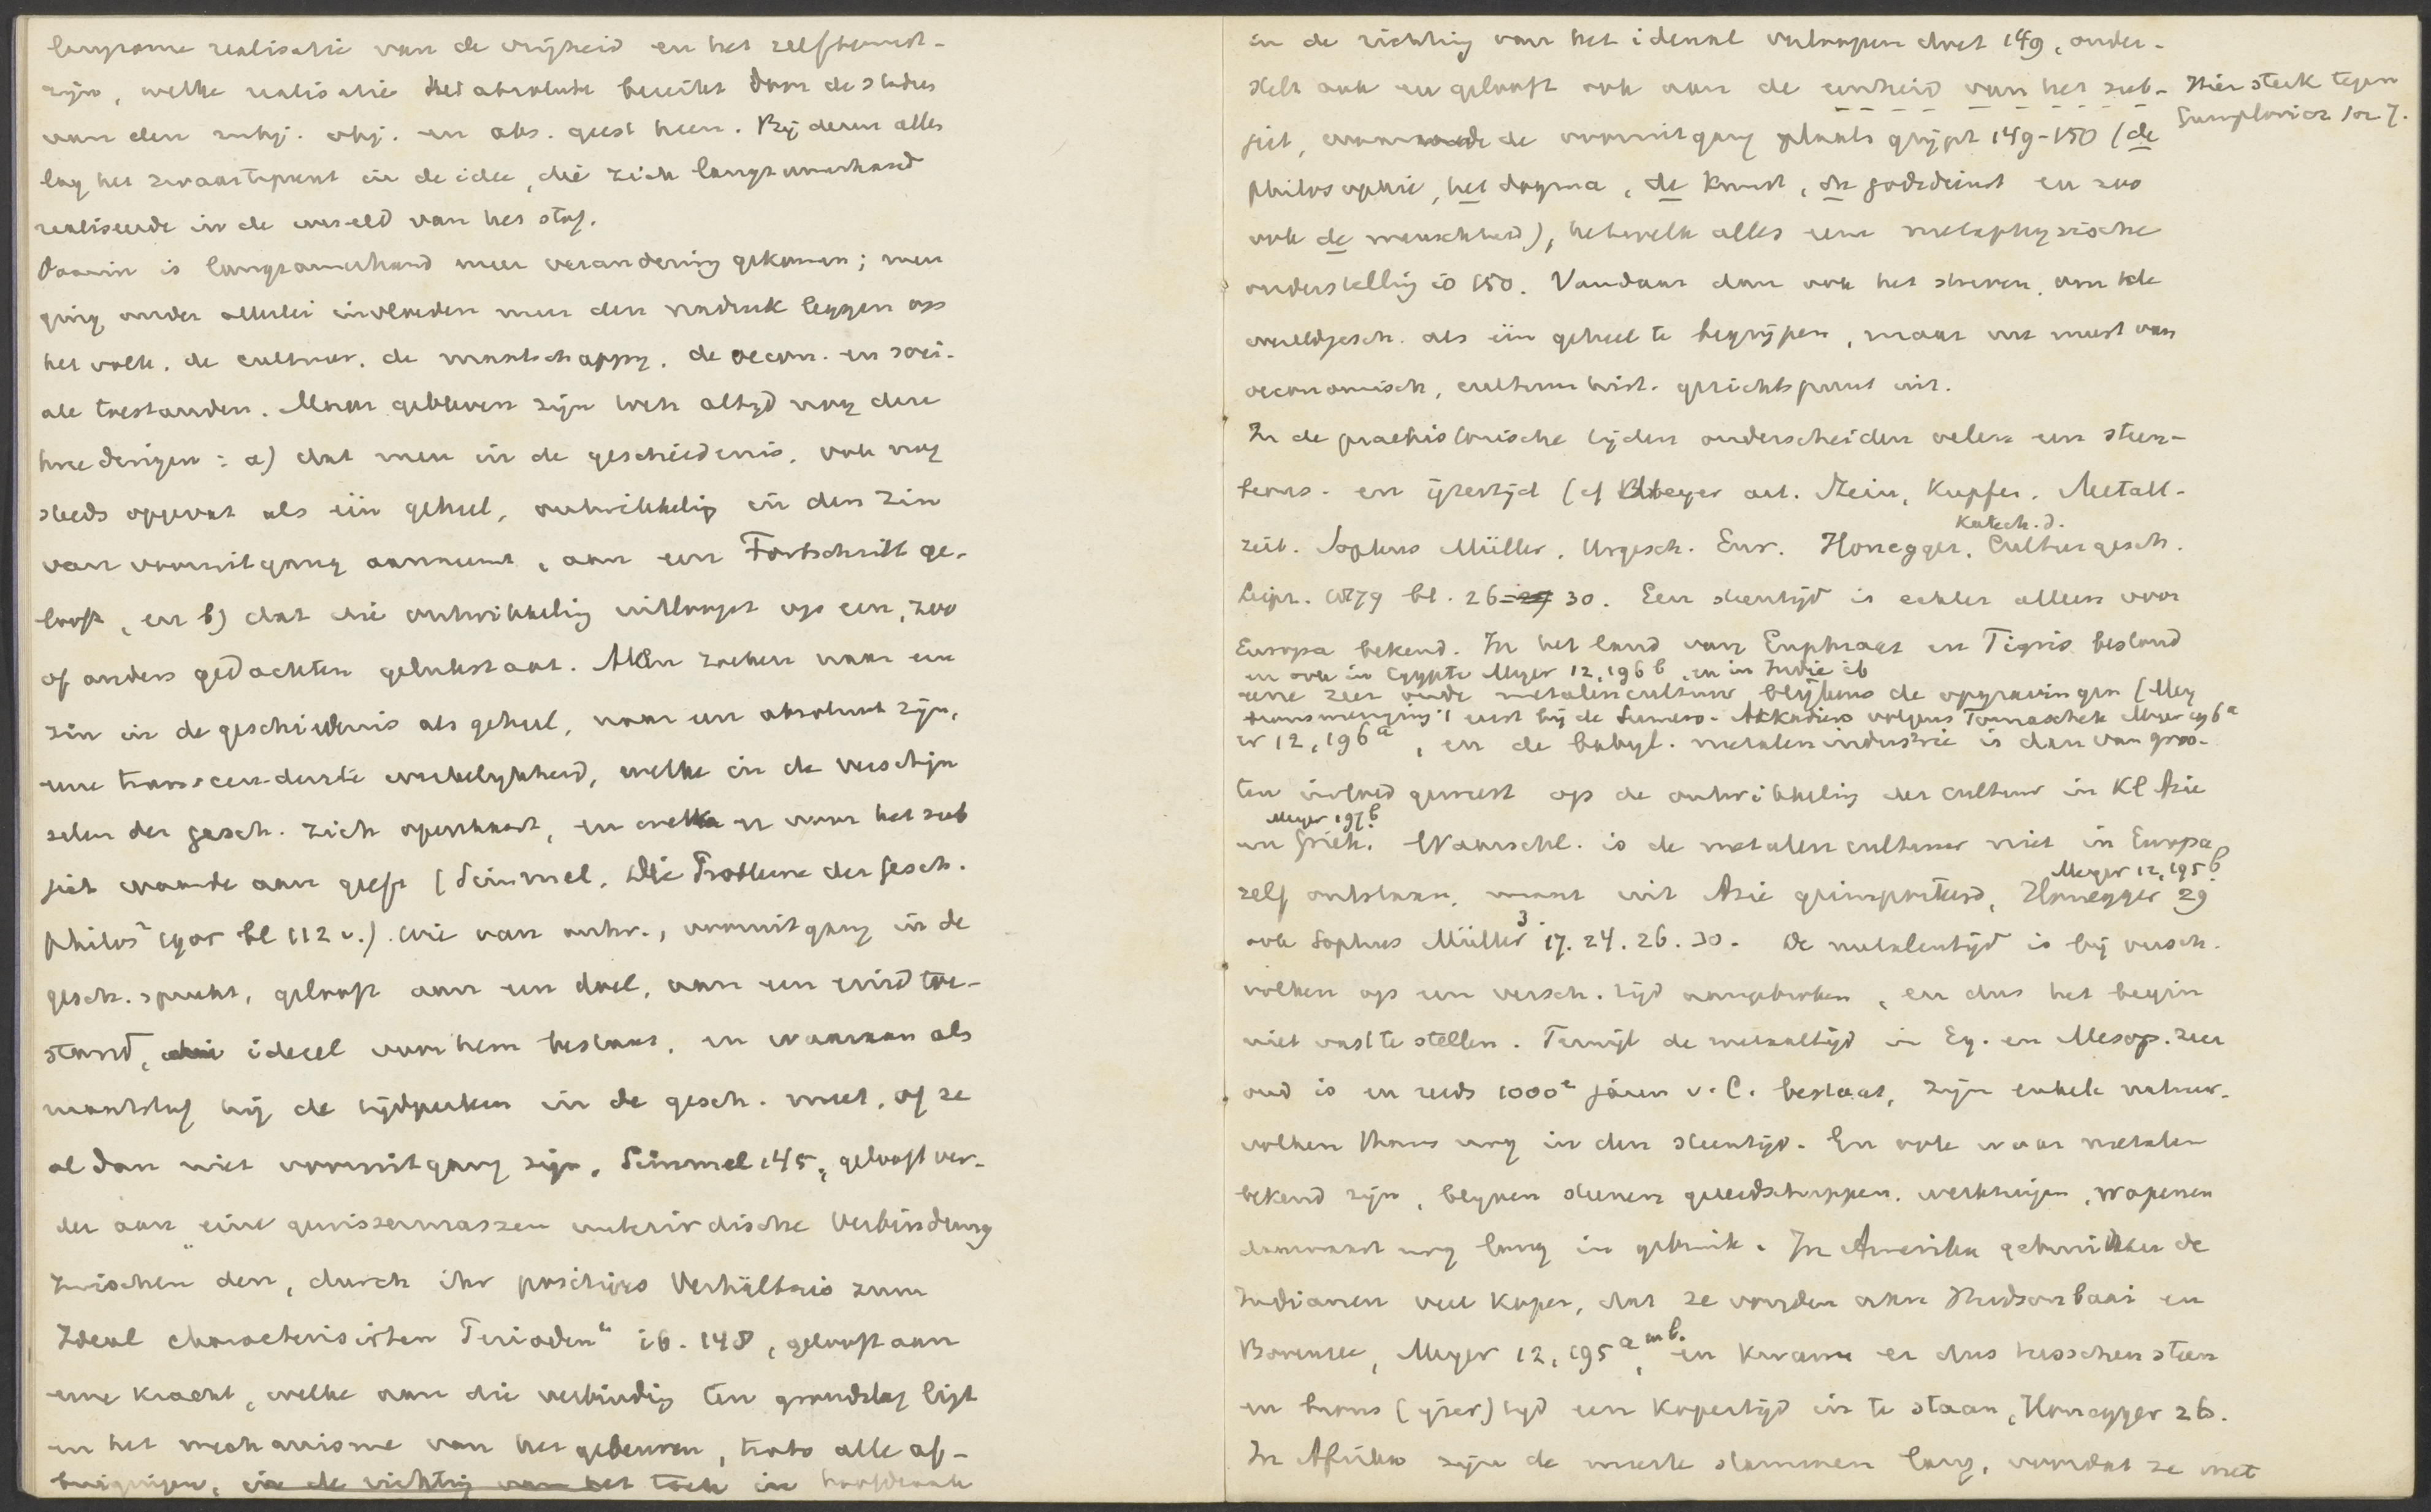 langzame realisatie van de vrijheid en het zelfbewust-
zijn, welke realisatie het absolute bereikt door de stadies
van den subj. obj. en abs. geest heen. Bij dezen alles
lag het zwaartepunt in de idee, die zich langzamerhand
realiseerde in de wereld van het stof.
Daarin is langzamerhand meer verandering gekomen; men
ging onder allerlei invloeden meer den nadruk leggen op
het volk, de cultuur, de maatschappy, de oecon. en soci-
ale toestanden. Maar gebleven zijn toch altijd nog deze
twee dingen: a) dat men in de geschiedenis, ook nog
steeds opgevat als één geheel, ontwikkeling in den zin
van vooruitgang aanneemt, aan een Fortschritt ge-
looft, en b) dat die ontwikkeling uitloopt op een, zoo
of anders gedachten gelukstaat. Allen zoeken naar een
zin in de geschiedenis als geheel, naar een absoluut zijn,
eene transcendente werkelykheid, welke in de verschijn
selen der gesch. zich openbaart, en welke er naar het sub
jict waarde aan geeft (Simmel, Die Probleme der Gesch.
philos² 1905 bl 112 v.). Wie van ontw., vooruitgang in de
gesch. spreekt, gelooft aan een doel, aan een eindtoe-
stand, die ideeel voor hem bestaat, en waaraan als
maatstaf hij de tijdperken in de gesch. meet, of ze
al dan niet vooruitgang zijn. Simmel 145, gelooft ver-
der aan „eine gewissermaszen unterirdische Verbindung
zwischen den, durch ihr positives Verhältnis zum
Ideal characterisirten Perioden“ ib. 148, gelooft aan
eene kracht, welke aan die verbinding ten grondslag ligt
en het mechanisme van het gebeuren, trots alle af-
buigingen, in de richting van het toch in hoofdzaak
in de richting van het ideaal verloopen doet 149, onder-
stelt ook en gelooft ook aan de eenheid van het sub-
ject, waaraan de vooruitgang plaats grijpt 149-150 (de
philosophie, het dogma, de kunst, de godsdienst en zoo
ook de menschheid), hetwelk alles eene metaphysische
onderstelling is 150. Vandaar dan ook het streven, om de
wereldgesch. als één geheel te begrijpen, maar nu meest van
oeconomisch, cultuurhist. gezichtspunt uit.
Hier sterk tegen
Gumplovicz 102 7.
In de praehistorische tijden onderscheiden velen een steen-
brons- en ijzertijd (cf Meyer art. Stein, Kupfer, Metall-
zeit. Sophus Müller, Urgesch. Eur. Honegger, Katech. d. Culturgesch.
Leipz. 1879 bl. 26-30. Een steentijd is echter alleen voor
Europa bekend. In het land van Euphraat en Tigris bestond
en ook in Egypte Meyer 12,196 b, en in Indie ib
eene zeer oude metalencultuur blijkens de opgravingen (Mey
bronsmenging 't eerst bij de Sumero-Akkadiers volgens Tomaschek Meyer 196 a
er 12,196 a, en de babyl. metalenindustrie is dan van groo-
ten invloed geweest op de ontwikkeling der cultuur in Kl Azie
en Griek. Meyer 197 b. Waarschl. is de metalencultuur niet in Europa
zelf ontstaan, maar uit Azie geimporteerd, Honegger 29 Meyer 12,195 b
ook Sophus Müller 3. 17. 24. 26. 30. De metalentijd is bij versch.
volken op een versch. tijd aangebroken, en dus het begin
niet vast te stellen. Terwijl de metaaltijd in Eg. en Mesop. zeer
oud is en reeds 1000e jaren v. C. bestaat, zijn enkele natuur-
volken thans nog in den steentijd. En ook waar metalen
bekend zijn, blyven steenen gereedschappen, werktuigen, wapenen
daarnaast nog lang in gebruik. In Amerika gebruikten de
Indianen veel koper, dat ze vonden aan Hudsonbaai en
Bovenzee, Meyer 12,195 a en b. en kwam er dus tusschen steen
en brons (ijzer) tijd een kopertijd in te staan, Honegger 26.
In Afrika zijn de meeste stammen lang, voordat ze met